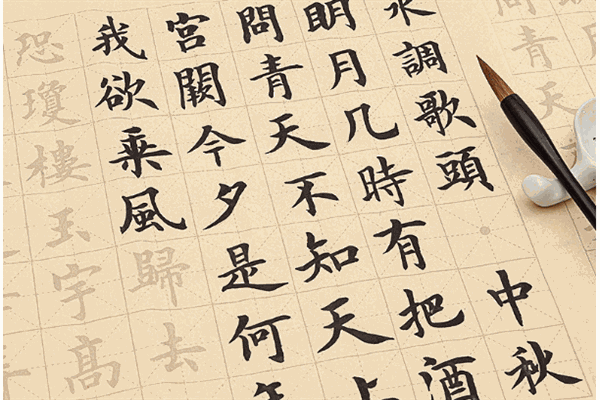 問青天
水調歌頭 中秋
明月几時有把酒
問青天不知天上
宮闕今夕是何年
我欲乘風歸去
恐瓊樓玉宇高